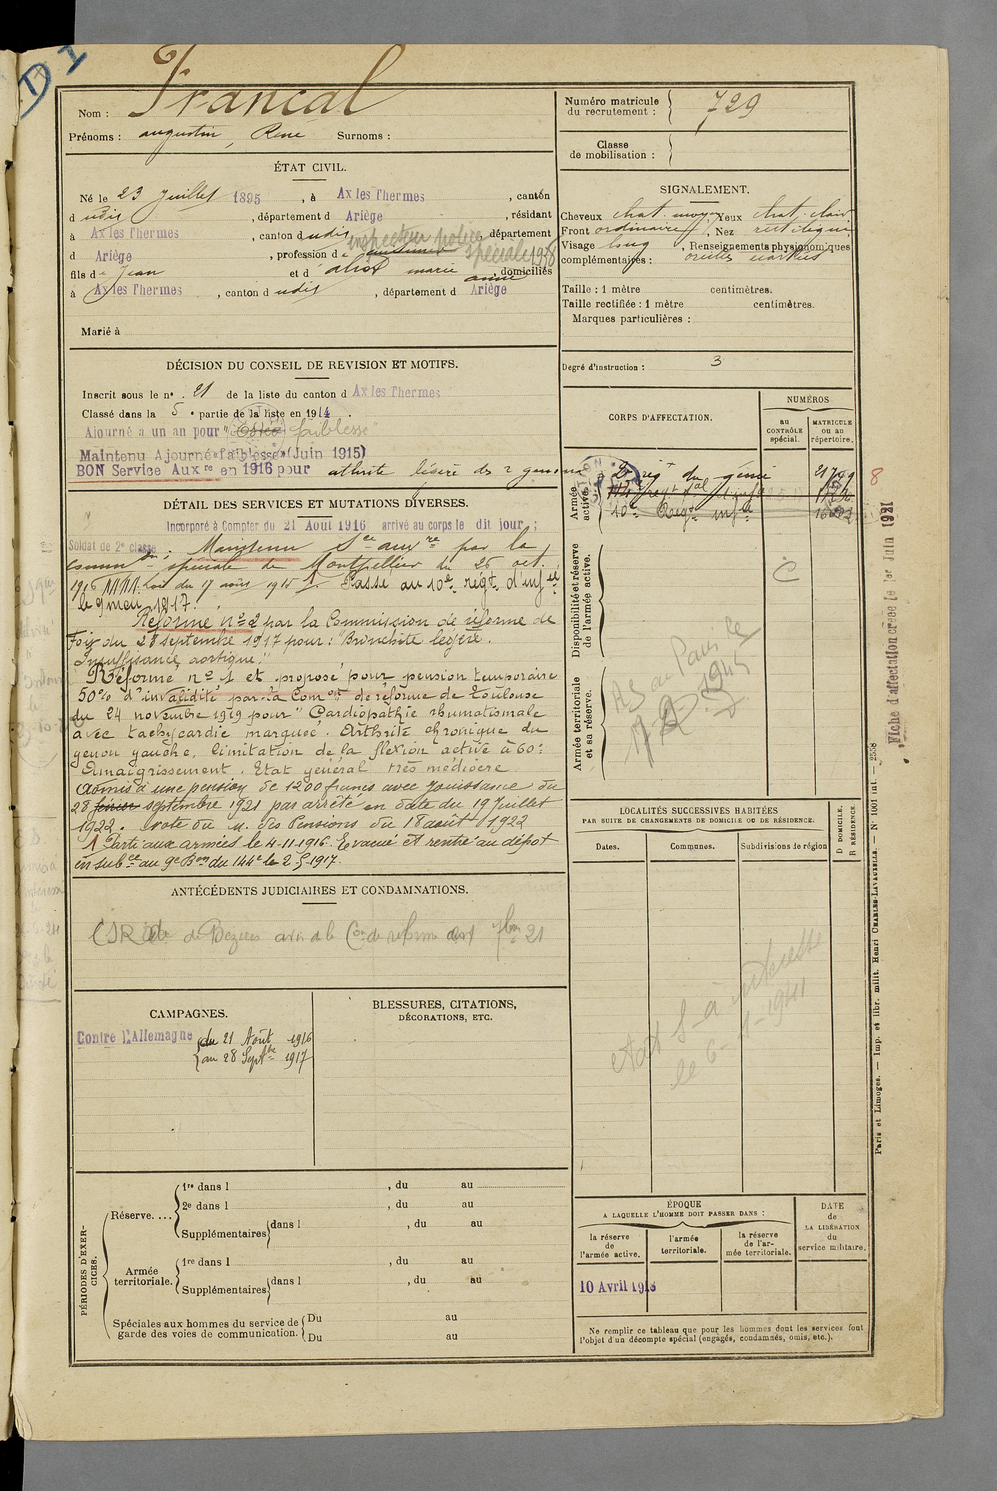 D I
Nom : Francal
Prénoms : augustin, René Surnoms :
ÉTAT CIVIL.
Né le 23 Juillet 1895, à Ax les Thermes, canton
d udit, département d Ariège, résidant
à Ax les Thermes, canton d udit, département
inspecteur police spéciale 1938
d Ariège, profession d
fils de Jean et d marie anne, domiciliés
à Ax les Thermes, canton d udit, département d Ariège
Marié à
DÉCISION DU CONSEIL DE REVISION ET MOTIFS.
Inscrit sous le n° 21 de la liste du canton d Ax les Thermes
Classé dans la 5e partie de la liste en 1914.
Ajourné à un an pour faiblesse
Maintenu Ajourné "faiblesse" (Juin 1915)
BON Service Auxre en 1916 pour arthrite légère des 2 genoux
DÉTAIL DES SERVICES ET MUTATIONS DIVERSES.
Incorporé à Compter du 21 Août 1916 arrivé au corps le dit jour ;
Soldat de 2e classe ; Maintenu Sce auxre par la
Common spéciale de Montpellier du 26 oct.
1916 Loi du 17 août 1915 Passé au 10e régt d'infie
le 9 1917.
Réformé n° 2 par la Commission de réforme de
Foix du 28 septembre 1917 pour : "Bronchite légère.
Insuffisance aortique."
Réformé n° 1 et proposé pour pension temporaire
50% d'invalidité par la Comon de réforme de Toulouse
du 24 novembre 1919 pour "Cardiopathie rhumatismale
avec tachycardie marquée. Arthrite chronique du
genou gauche, limitation de la flexion active à 60°
Amaigrissement. Etat général très médiocre
Admis à une pension de 1200 francs avec jouissance du
28 février septembre 1921 par arrêté en date du 19 Juillet
1922. note du M. des Pensions du 18 août 1922
1 Parti aux armées le 4-11-1916. Evacué et rentré au dépôt
en subce au 9e Bon du 144e le 2-5-1917.
ANTÉCÉDENTS JUDICIAIRES ET CONDAMNATIONS.
CSR de Béziers avis de la Con de réforme 7bre 21
CAMPAGNES.
Contre l'Allemagne du 21 Août 1916
au 28 Septbre 1917
BLESSURES, CITATIONS,
DÉCORATIONS, ETC.
PÉRIODES D'EXERCICES.
Réserve....
1re dans l , du au
2e dans l , du au
Supplémentaires dans l , du au
Armée territoriale.
1re dans l , du au
Supplémentaires dans l , du au
Spéciales aux hommes du service de garde des voies de communication.
Du au
Du au
Numéro matricule du recrutement : 729
Classe de mobilisation :
SIGNALEMENT.
Cheveux chat. moyen Yeux chat. clair
Front ordinaire, Nez rectiligne
Visage long, Renseignements physionomiques
complémentaires : oreilles écartées
Taille : 1 mètre centimètres.
Taille rectifiée : 1 mètre centimètres.
Marques particulières :
Degré d'instruction : 3
CORPS D'AFFECTATION.
NUMÉROS
au CONTRÔLE spécial.
MATRICULE ou au répertoire.
Armée active.
2e régt du génie
10e Régt infie
Disponibilité et réserve de l'armée active.
C
Armée territoriale et sa réserve.
1945
8
Fiche d'affectation créée le 1er Juin 1921
LOCALITÉS SUCCESSIVES HABITÉES
PAR SUITE DE CHANGEMENTS DE DOMICILE OU DE RÉSIDENCE.
Dates.
Communes.
Subdivisions de région
D DOMICILE.
R RÉSIDENCE.
le 6-1-1941
ÉPOQUE
A LAQUELLE L'HOMME DOIT PASSER DANS :
la réserve de l'armée active.
l'armée territoriale.
la réserve de l'armée territoriale.
DATE de LA LIBÉRATION du service militaire.
10 Avril 1918
Ne remplir ce tableau que pour les hommes dont les services font
l'objet d'un décompte spécial (engagés, condamnés, omis, etc.).
Paris et Limoges. — Imp. et libr. milit. Henri CHARLES-LAVAUZELLE. — N° 1001 int. — 2558